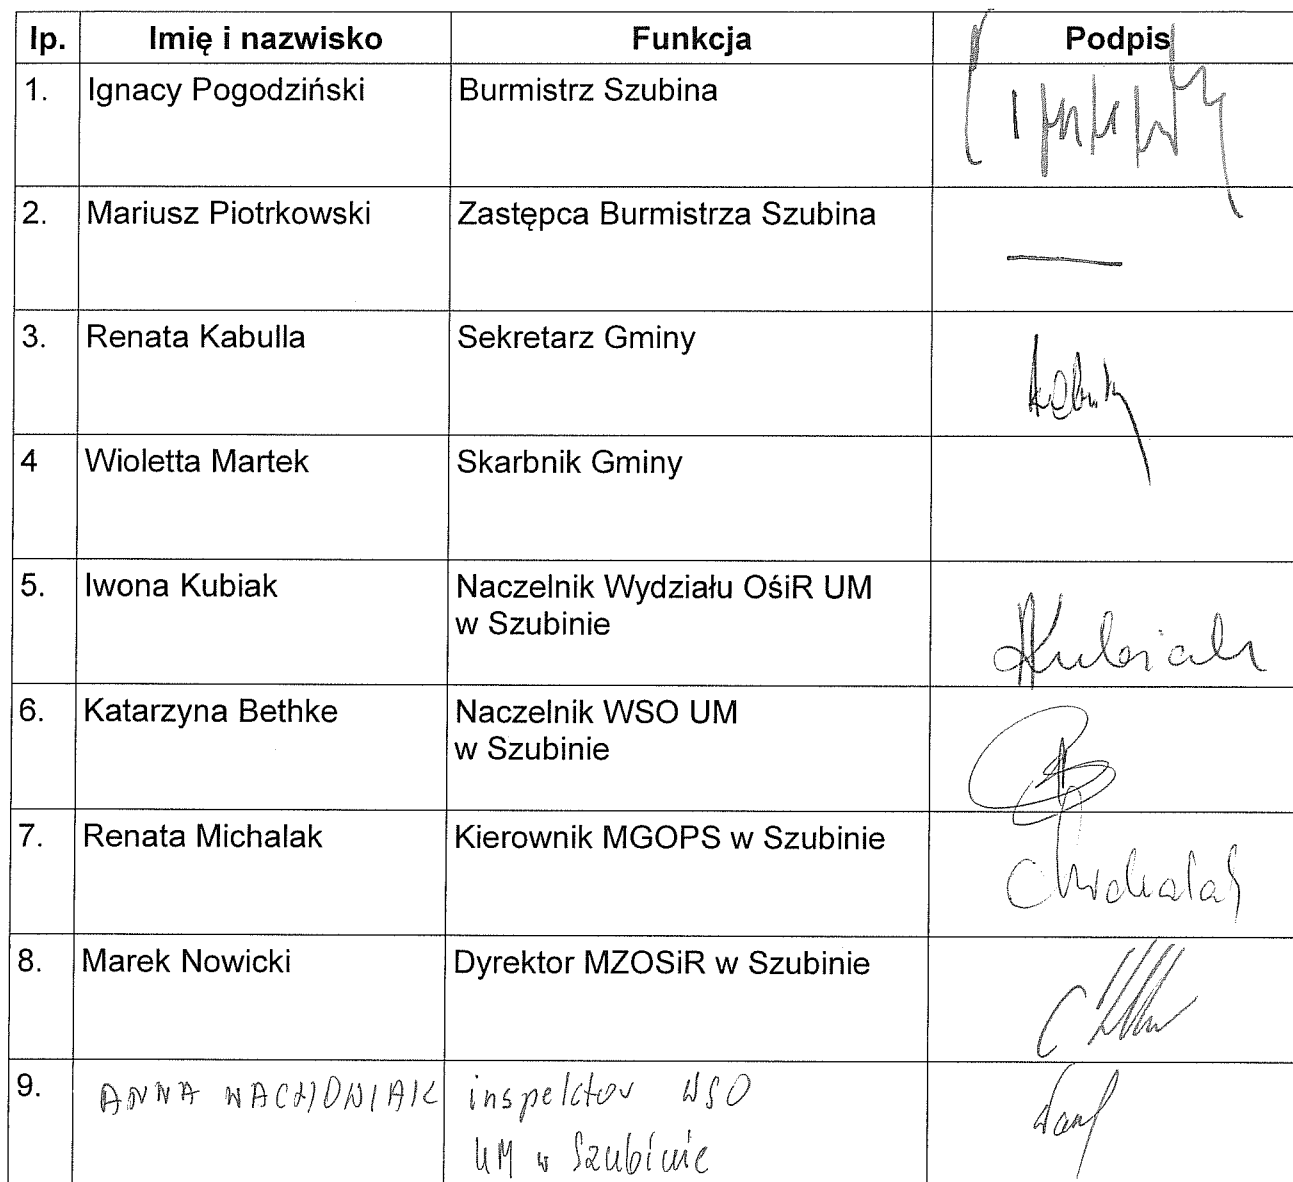 lp. Imię i nazwisko Funkcja Podpis
1. Ignacy Pogodziński Burmistrz Szubina
2. Mariusz Piotrkowski Zastępca Burmistrza Szubina —
3. Renata Kabulla Sekretarz Gminy
4 Wioletta Martek Skarbnik Gminy
5. Iwona Kubiak Naczelnik Wydziału OśiR UM
w Szubinie Kubiak
6. Katarzyna Bethke Naczelnik WSO UM
w Szubinie
7. Renata Michalak Kierownik MGOPS w Szubinie Michalak
8. Marek Nowicki Dyrektor MZOSiR w Szubinie
9. ANNA inspektor WSO
UM w Szubinie